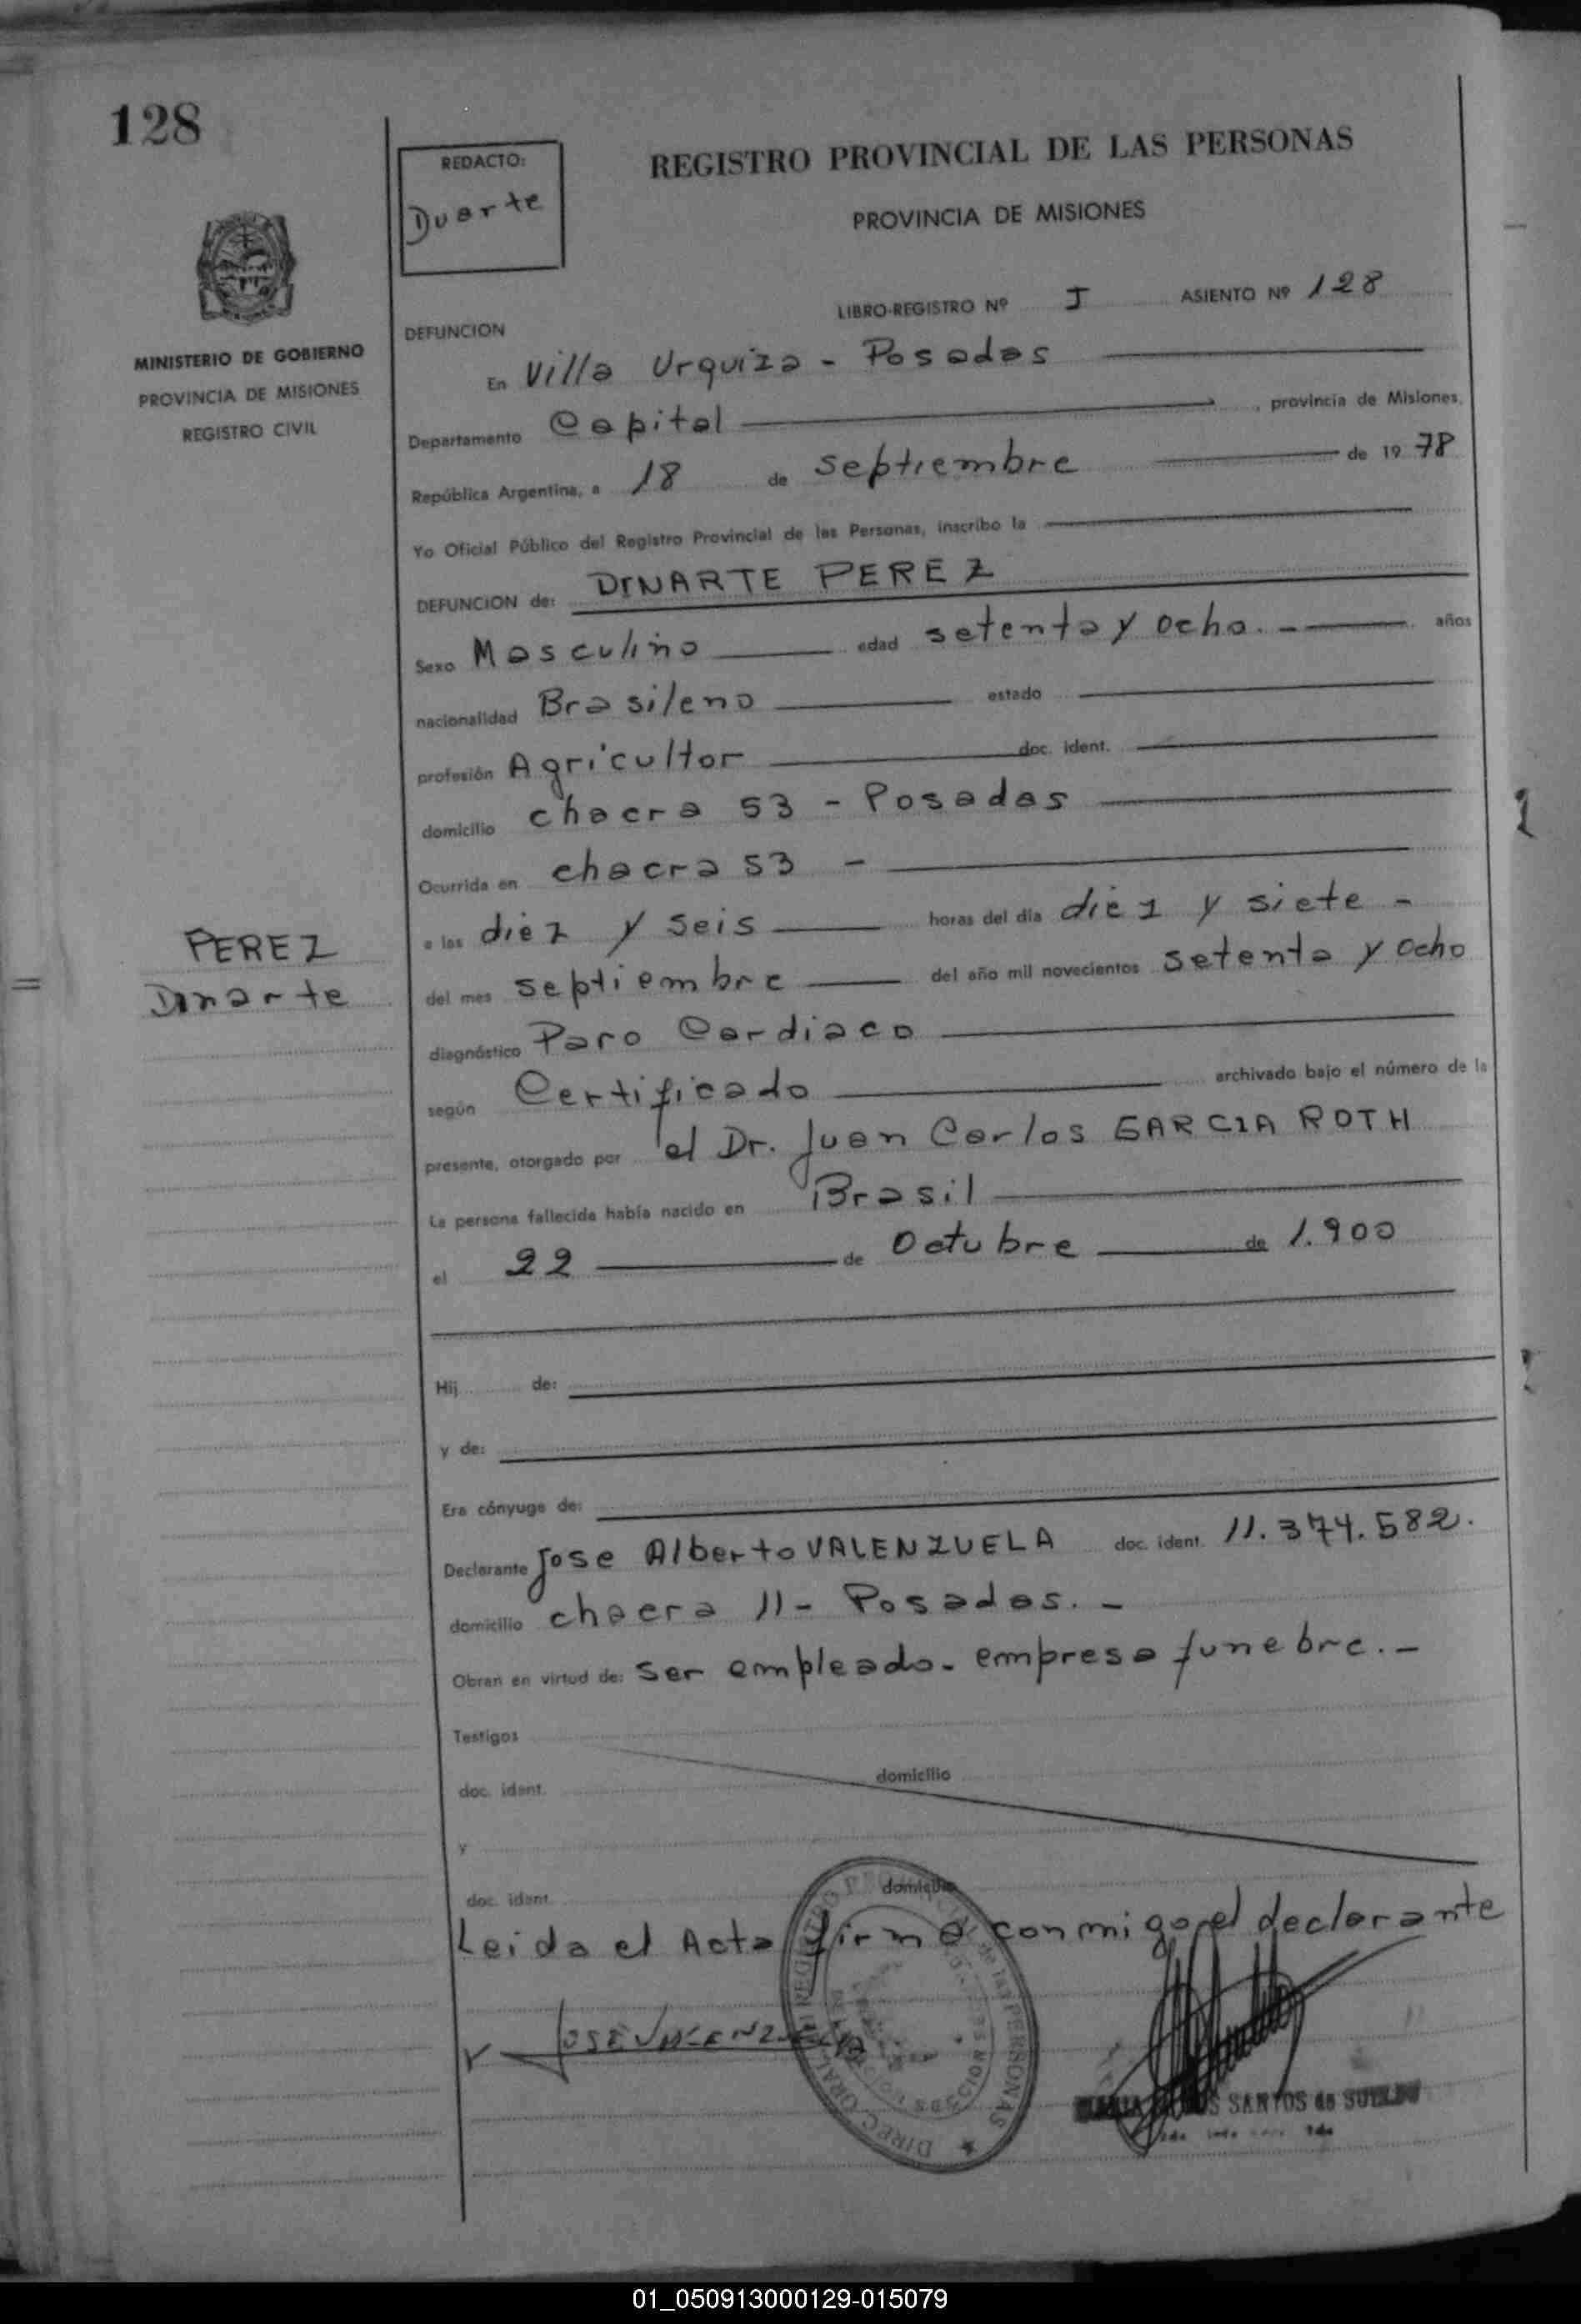 128
REDACTO:
Duarte
REGISTRO PROVINCIAL DE LAS PERSONAS
PROVINCIA DE MISIONES
MINISTERIO DE GOBIERNO
PROVINCIA DE MISIONES
REGISTRO CIVIL
LIBRO-REGISTRO Nº I ASIENTO Nº 128
DEFUNCION
En Villa Urquiza - Posadas
Departamento Capital , provincia de Misiones,
República Argentina, a 18 de septiembre de 1978
Yo Oficial Público del Registro Provincial de las Personas, inscribo la
DEFUNCION de: DINARTE PEREZ
Sexo Masculino edad setenta y ocho. - años
nacionalidad Brasileno estado
profesión Agricultor doc. ident.
domicilio chacra 53 - Posadas
Ocurrida en chacra 53 -
a las diez y seis horas del día diez y siete -
del mes septiembre del año mil novecientos setenta y ocho
PEREZ
Dinarte
diagnóstico Paro Cardiaco
según Certificado archivado bajo el número de la
presente, otorgado por el Dr. Juan Carlos GARCIA ROTH
La persona fallecida había nacido en Brasil
el 22 de Octubre de 1.900
Hij de:
y de:
Era cónyuge de:
Declarante Jose Alberto VALENZUELA doc. ident. 11.374.582.
domicilio chacra 11 - Posadas. -
Obran en virtud de: ser empleado - empresa funebre. -
Testigos
doc. ident. domicilio
y
doc. ident. domicilio
Leida el Acta firma conmigo el declarante
JOSE VALENZUELA
SANTOS de
01_050913000129-015079